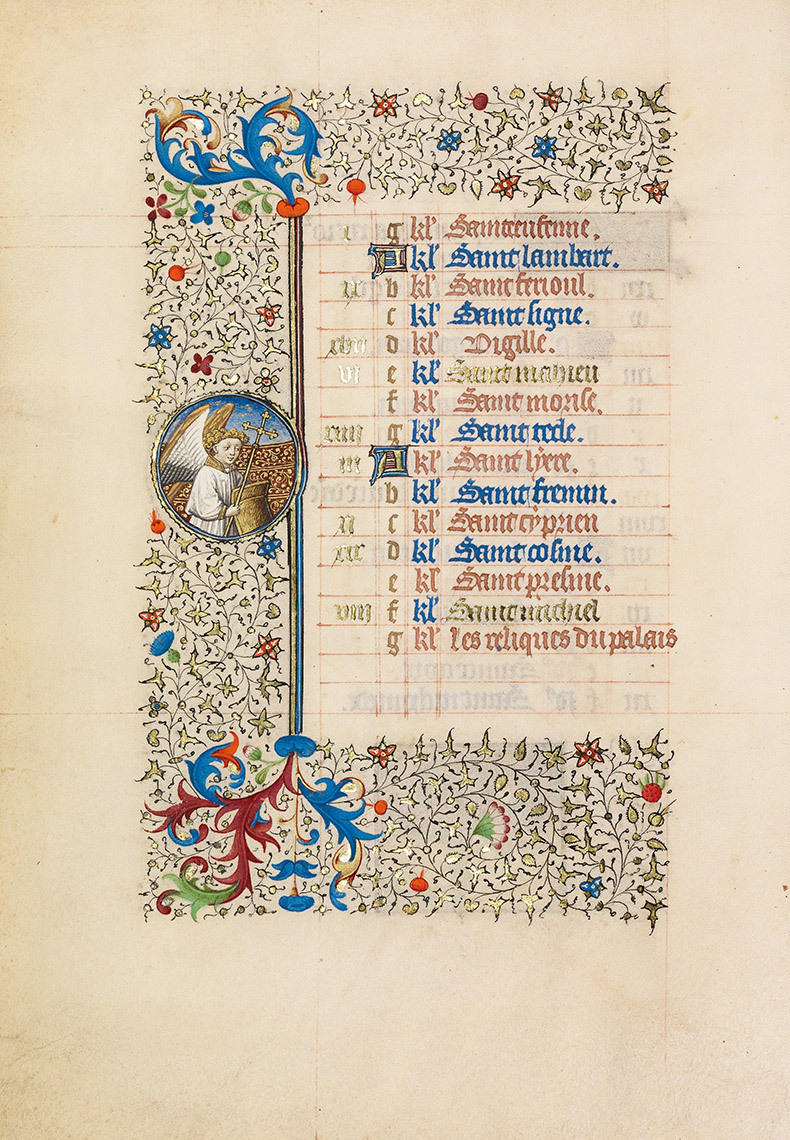 g kl' Sainte eufeme.
A kl' Saint lambart.
b kl' Saint ferioul.
c kl' Saint signe.
xvii d kl' Vigille.
vi e kl' Saint mahieu
f kl' Saint morise.
xiiii g kl' Saint tecle.
iii A kl' Saint lyere.
b kl' Saint fremin.
xi c kl' Saint cyprien
xix d kl' Saint cosme.
e kl' Saint presme.
viii f kl' Saint michiel
g kl' les reliques du palais